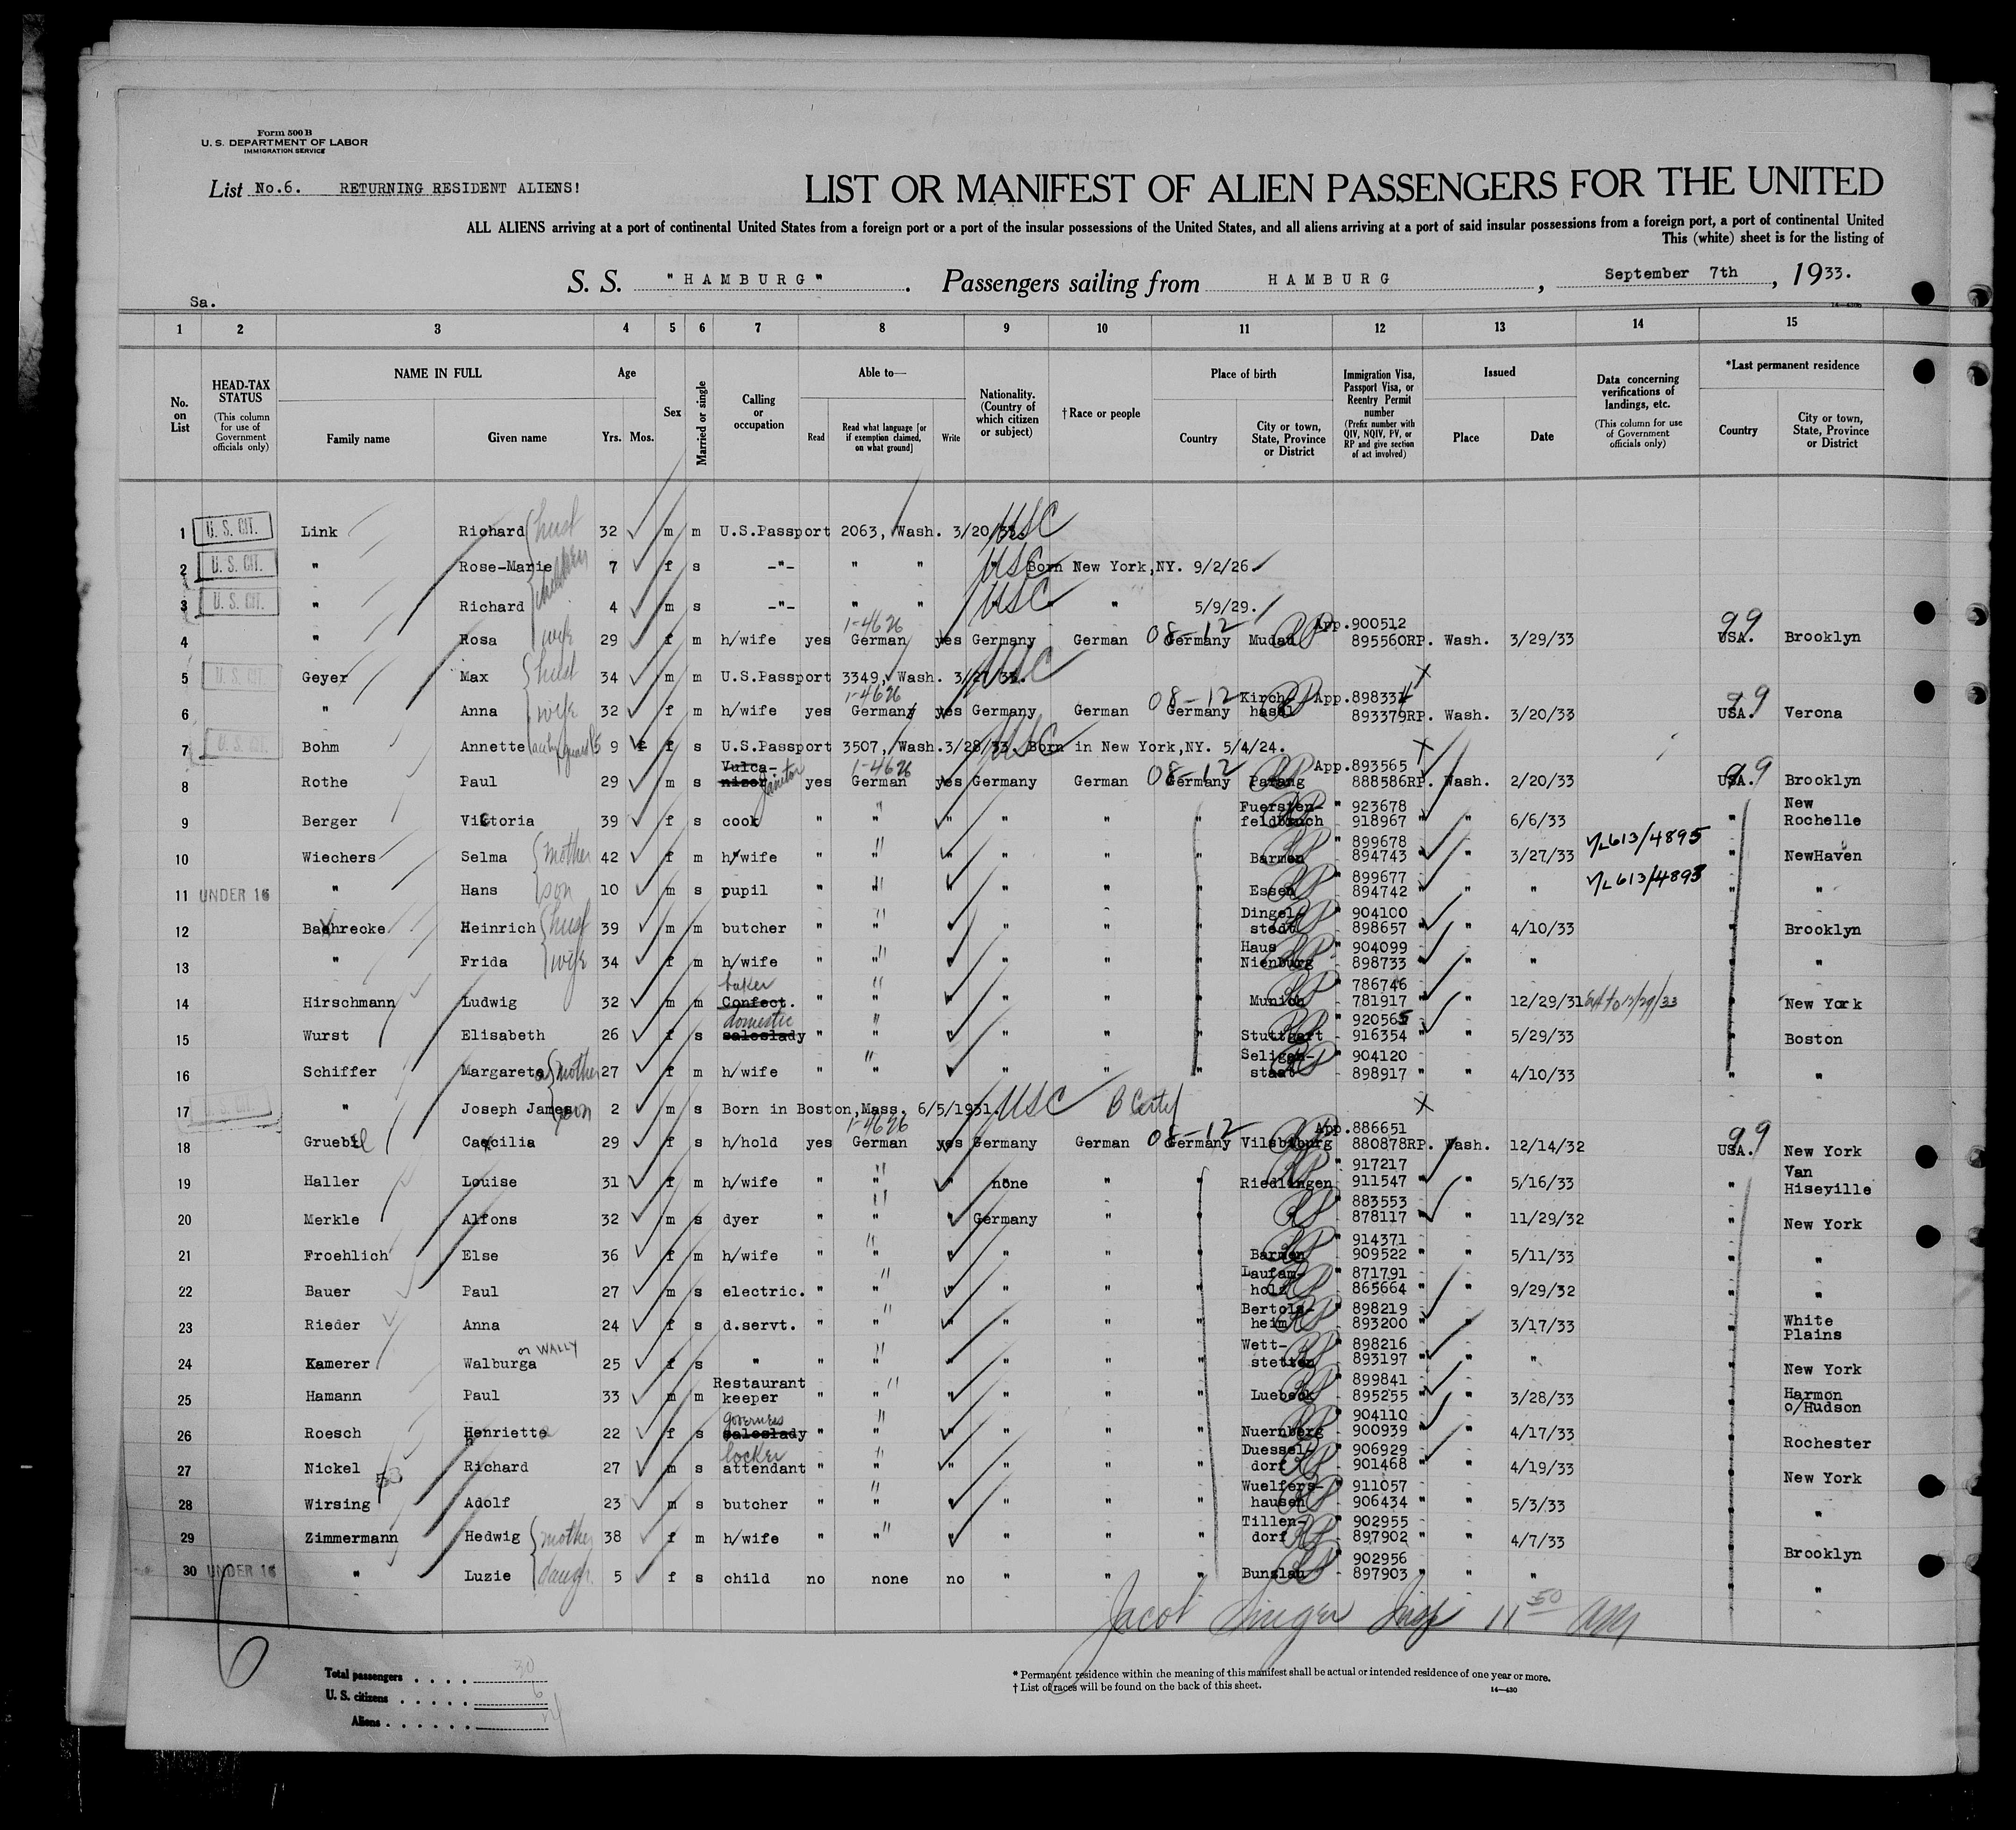 Form 500 B
U. S. DEPARTMENT OF LABOR
IMMIGRATION SERVICE
List No.6. RETURNING RESIDENT ALIENS!
LIST OR MANIFEST OF ALIEN PASSENGERS FOR THE UNITED
ALL ALIENS arriving at a port of continental United States from a foreign port or a port of the insular possessions of the United States, and all aliens arriving at a port of said insular possessions from a foreign port, a port of continental United
This (white) sheet is for the listing of
S. S. "HAMBURG". Passengers sailing from HAMBURG, September 7th, 1933.
Sa.
1 2 3 4 5 6 7 8 9 10 11 12 13 14 15
No. on List
HEAD-TAX STATUS (This column for use of Government officials only)
NAME IN FULL Family name Given name
Age Yrs. Mos.
Sex
Married or single
Calling or occupation
Able to— Read Read what language [or if exemption claimed, on what ground] Write
Nationality. (Country of which citizen or subject)
† Race or people
Place of birth Country City or town, State, Province or District
Immigration Visa, Passport Visa, or Reentry Permit number (Prefix number with QIV, NQIV, PV, or RP and give section of act involved)
Issued Place Date
Data concerning verifications of landings, etc. (This column for use of Government officials only)
*Last permanent residence Country City or town, State, Province or District
1 U. S. CIT. Link Richard hust 32 m m U.S.Passport 2063, Wash. 3/20/33. USC
2 U. S. CIT. " Rose-Marie children 7 f s -"- " " " USC Born New York,NY. 9/2/26.
3 U. S. CIT. " Richard 4 m s -"- " " " USC " 5/9/29.
4 " Rosa wife 29 f m h/wife yes 1-4626 German yes Germany German 08-12 Germany Mudau App.900512 895560RP. Wash. 3/29/33 99 USA. Brooklyn
5 U. S. CIT. Geyer Max hust 34 m m U.S.Passport 3349, Wash. 3/27/33. USC X
6 " Anna wife 32 f m h/wife yes 1-4626 German yes Germany German 08-12 Germany Kirch-hasel App.898334 893379RP. Wash. 3/20/33 99 USA. Verona
7 U. S. CIT. Bohm Annette 9 f s U.S.Passport 3507, Wash.3/28/33. USC Born in New York,NY. 5/4/24. X
8 Rothe Paul 29 m s Vulca-nizer Janitor yes 1-4626 German yes Germany German 08-12 Germany Patang App.893565 888586RP. Wash. 2/20/33 99 USA. Brooklyn
9 Berger Victoria 39 f s cook " " " " " " Fuersten-feldbruch " 923678 918967 " " 6/6/33 " New Rochelle
10 Wiechers Selma mother 42 f m h/wife " " " " " " Barmen " 899678 894743 " " 3/27/33 V/L 613/4895 " NewHaven
11 UNDER 16 " Hans son 10 m s pupil " " " " " " Essen " 899677 894742 " " " V/L 613/4895 " "
12 Baehrecke Heinrich hust 39 m m butcher " " " " " " Dingel-stedt " 904100 898657 " " 4/10/33 " Brooklyn
13 " Frida wife 34 f m h/wife " " " " " " Haus Nienburg " 904099 898733 " " " " "
14 Hirschmann Ludwig 32 m m baker Confect. " " " " " " Munich " 786746 781917 " " 12/29/31 Ext to 12/29/33 " New York
15 Wurst Elisabeth 26 f s domestic saleslady " " " " " " Stuttgart " 920565 916354 " " 5/29/33 " Boston
16 Schiffer Margareta mother 27 f m h/wife " " " " " " Seligen-stadt " 904120 898917 " " 4/10/33 " "
17 U. S. CIT. " Joseph James son 2 m s Born in Boston,Mass. 6/5/1931. USC B Certf X
18 Gruebel Caecilia 29 f s h/hold yes 1-4626 German yes Germany German 08-12 Germany Vilsbiburg App.886651 880878RP. Wash. 12/14/32 99 USA. New York
19 Haller Louise 31 f m h/wife " " " none " " Riedlingen " 917217 911547 " " 5/16/33 " Van Hiseville
20 Merkle Alfons 32 m s dyer " " " Germany " " " 883553 878117 " " 11/29/32 " New York
21 Froehlich Else 36 f m h/wife " " " " " " Barmen " 914371 909522 " " 5/11/33 " "
22 Bauer Paul 27 m s electric. " " " " " " Laufam-holz " 871791 865664 " " 9/29/32 " "
23 Rieder Anna 24 f s d.servt. " " " " " " Bertols-heim " 898219 893200 " " 3/17/33 " White Plains
24 Kamerer Walburga or WALLY 25 f s " " " " " " " Wett-stetten " 898216 893197 " " " " New York
25 Hamann Paul 33 m m Restaurant keeper " " " " " " Luebeck " 899841 895255 " " 3/28/33 " Harmon o/Hudson
26 Roesch Henriette 22 f s governess saleslady " " " " " " Nuernberg " 904110 900939 " " 4/17/33 " Rochester
27 Nickel Richard 27 m s locker attendant " " " " " " Duessel-dorf " 906929 901468 " " 4/19/33 " New York
28 Wirsing Adolf 23 m s butcher " " " " " " Wuelfers-hausen " 911057 906434 " " 5/3/33 " "
29 Zimmermann Hedwig mother 38 f m h/wife " " " " " " Tillen-dorf " 902955 897902 " " 4/7/33 " Brooklyn
30 UNDER 16 " Luzie daugr. 5 f s child no none no " " " Bunslau " 902956 897903 " " " " "
Jacob Singer Insp 11 50
6
Total passengers . . . . 30
U. S. citizens . . . . . 6
Aliens . . . . . . 24
* Permanent residence within the meaning of this manifest shall be actual or intended residence of one year or more.
† List of races will be found on the back of this sheet.
14—430